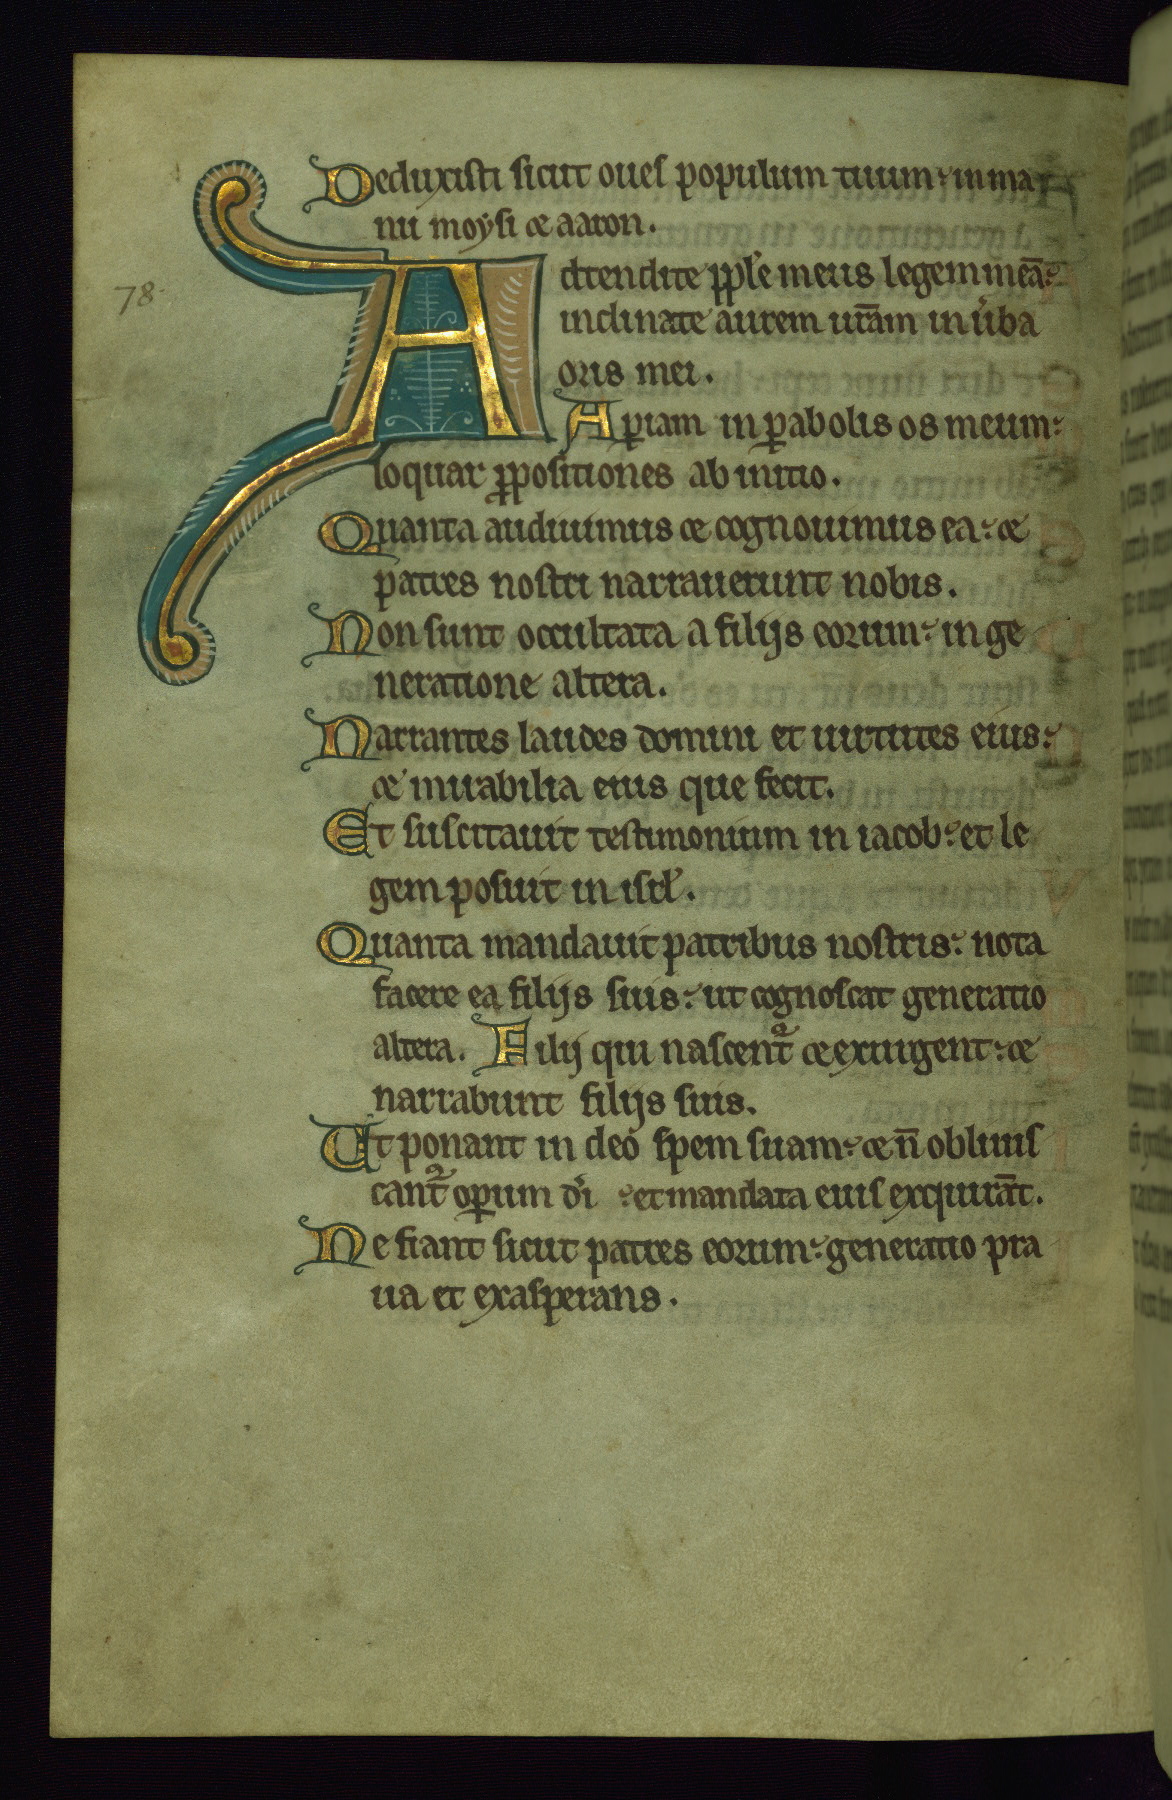 Deduxisti sicut oues populum tuum: in ma
nu moysi & aaron.
78.
Adtendite pp̄le meus legem meā:
inclinate aurem urām in ur̄ba
oris mei.
Aꝑiam in ꝑabolis os meum:
loquar ꝓpositiones ab initio.
Quanta audiuimus & cognouimus ea: &
patres nostri narrauerunt nobis.
Non sunt occultata a filijs eorum: in ge
neratione altera.
Narrantes laudes domini et uirtutes eius:
& mirabilia eius que fecit.
Et suscitauit testimonium in iacob: et le
gem posuit in isrl̄.
Quanta mandauit patribus nostris: nota
facere ea filijs suis: ut cognoscat generatio
altera. Filij qui nascent̄ & exurgent: &
narrabunt filijs suis.
Ut ponant in deo spem suam: & n̄ obliuis
cant̄ oꝑum dī : et mandata eius exquirāt.
Ne fiant sicut patres eorum: generatio pra
ua et exasperans.